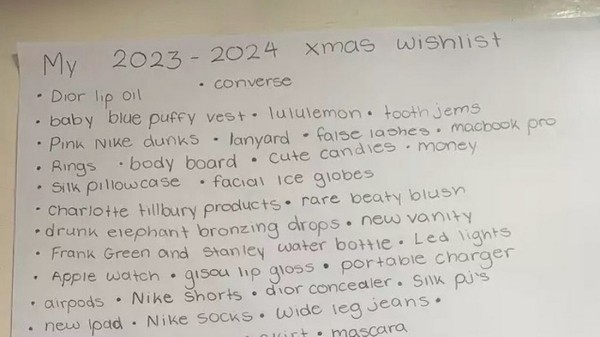 My 2023-2024 xmas wishlist
• Dior lip oil • converse
• baby blue puffy vest • lululemon • tooth jems
• Pink Nike dunks • lanyard • false lashes • macbook pro
• Rings • body board • cute candles • money
• Silk pillowcase • facial ice globes
• charlotte tillbury products • rare beaty blush
• drunk elephant bronzing drops • new vanity
• Frank Green and Stanley water bottle • Led lights
• Apple watch • gisou lip gloss • portable charger
• airpods • Nike shorts • dior concealer • Silk pj's
• new Ipad • Nike socks • wide leg jeans •
• mascara